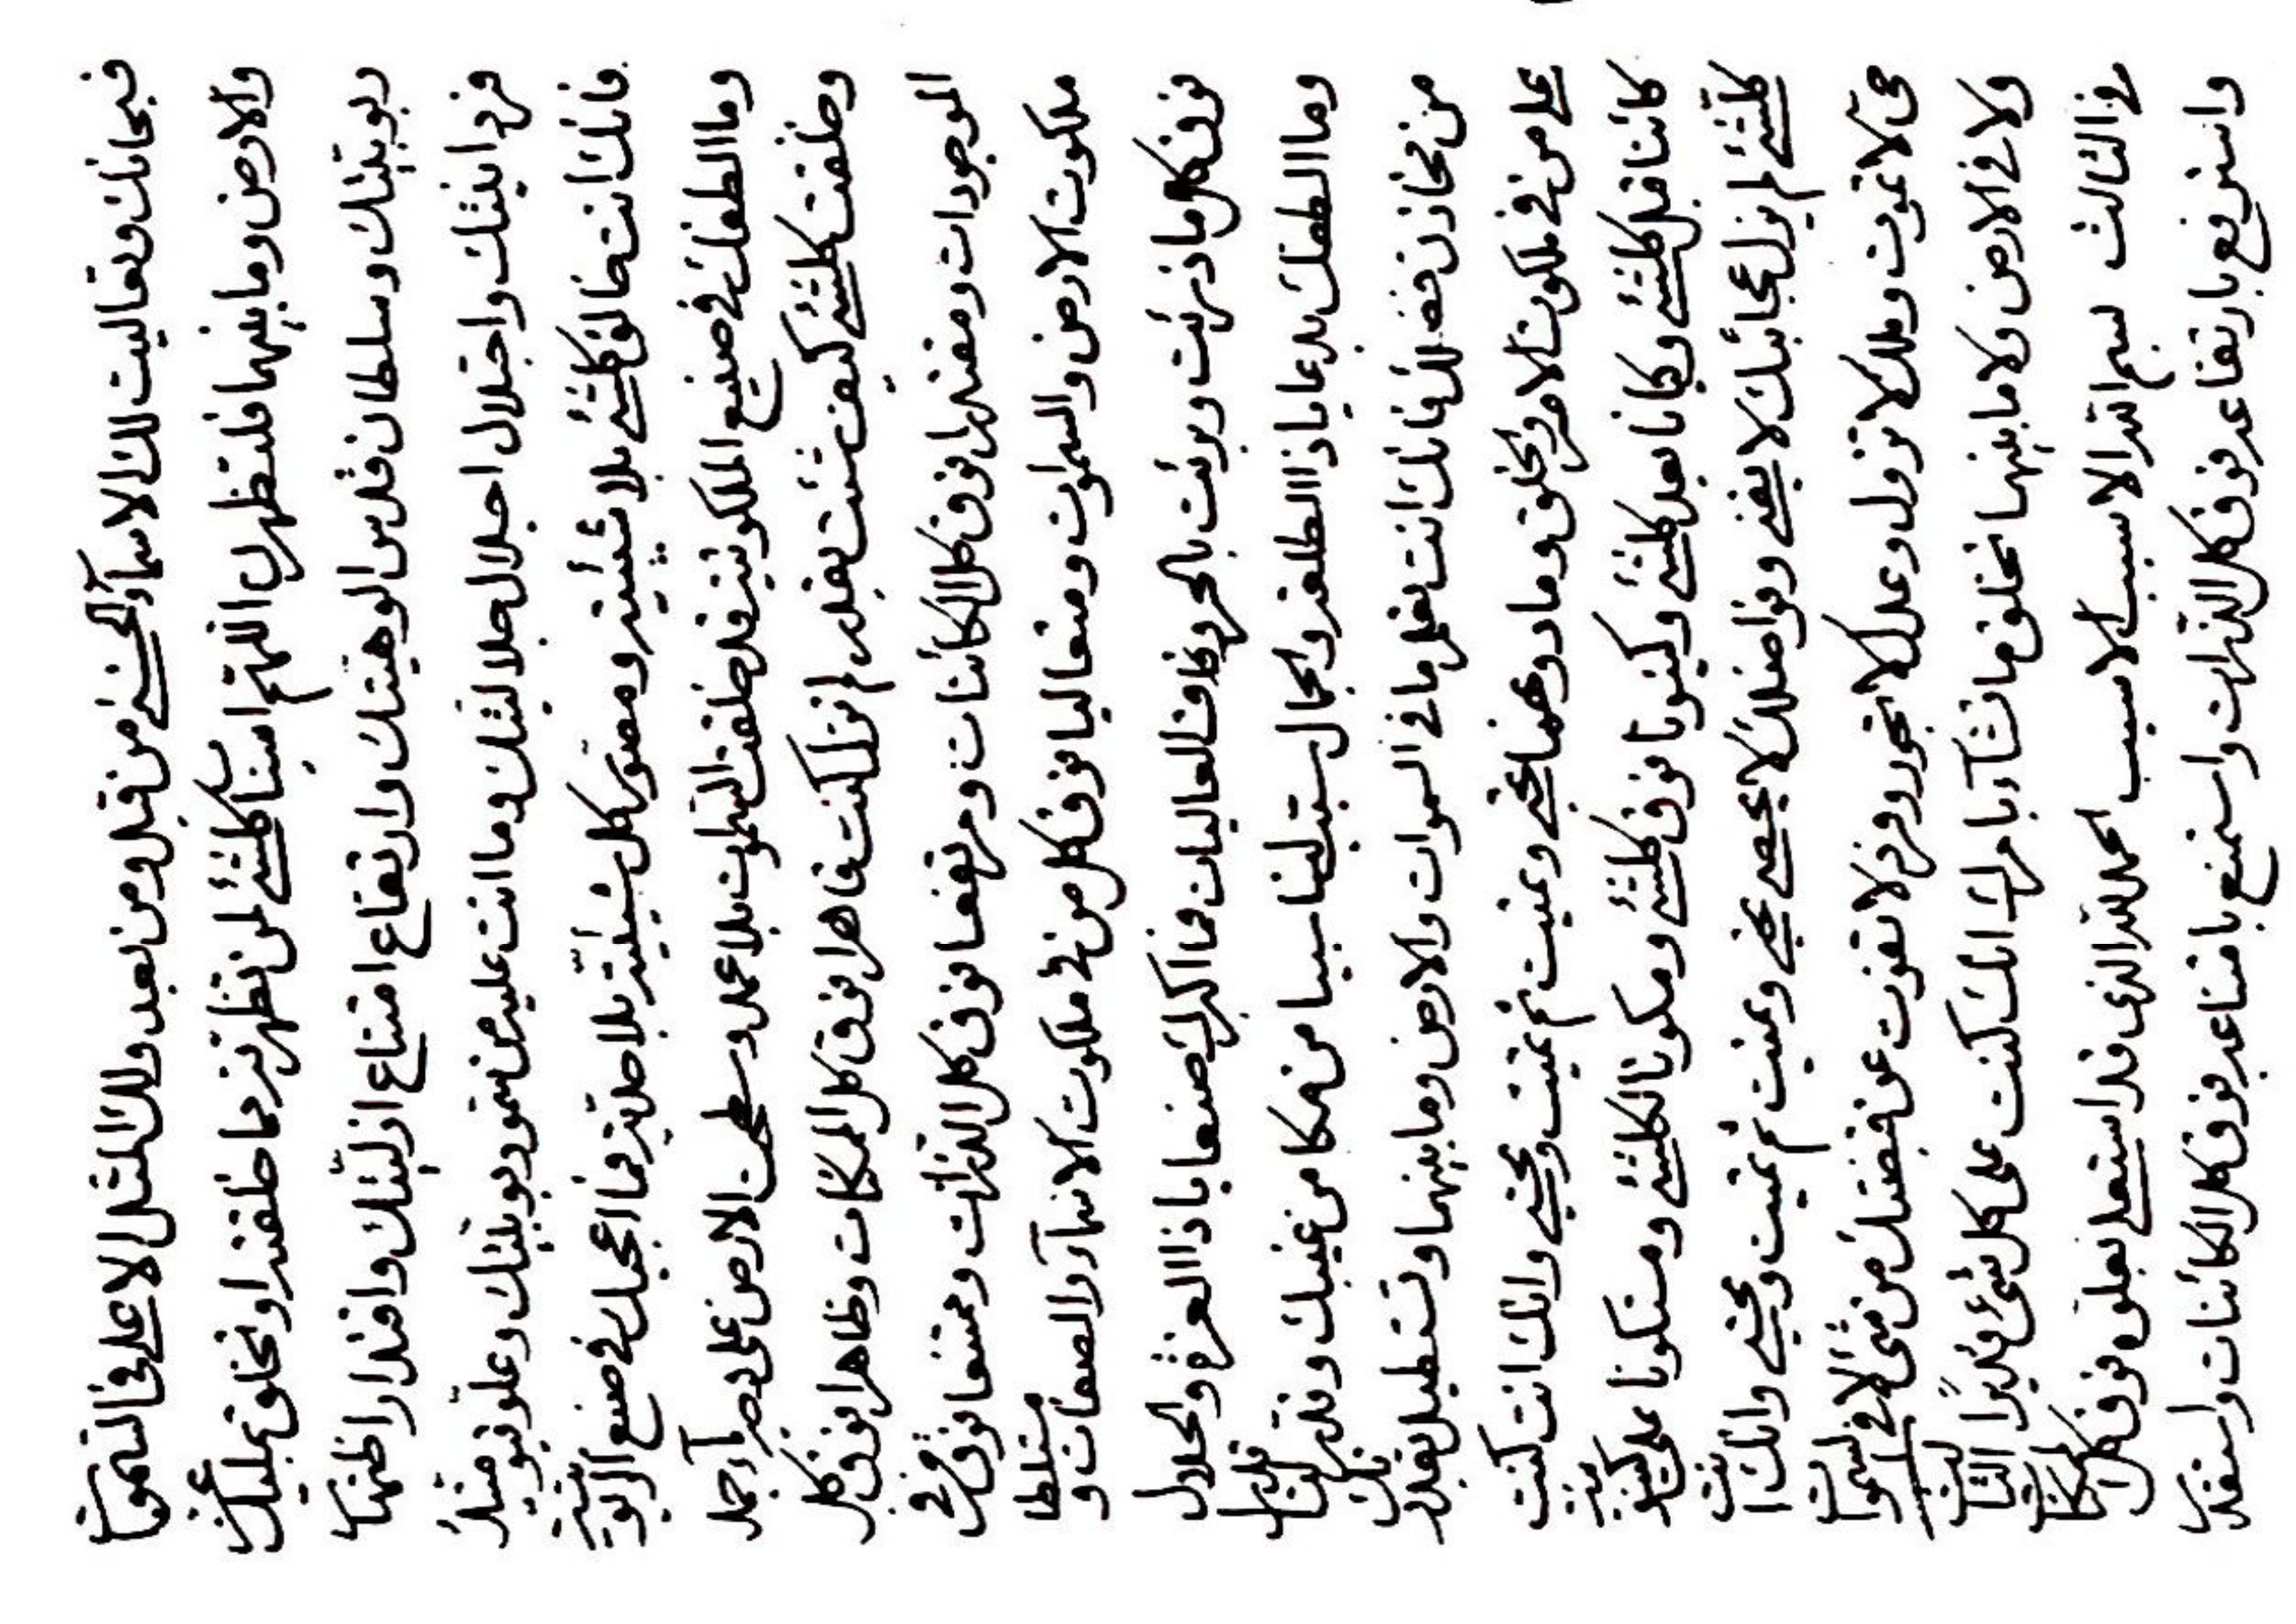 فسبحانك وتعاليت لك الاسمآء الحسنى من قبل ومن بعد ولك المثل الاعلى فى السموات
والارض وما بينهما فلتظهرن اللهم امنآء كلشئ لمن تظهرنه مما خلقته او تخلق بمليك
ربوبيتك وسلطان قدس الوهيتك وارتفاع امتناع ازليتك واقتدار اظهار
فردانيتك واجتلال اجلال جلاليتك وما انت عليه من سمو ربوبيتك وعلو قيوميتك
فانك انت خالق كلشئ بلا شيئية ومصور كل شيئية بلا حدية فما اعجبك فى صنع الربوبية
وما الطفك فى صنيع الملكوتية قد خلقت السموات بلا عمد وسطحت الارض على وجه مآء جمد
وخلقت كلشئ كيف شئت بقدر لم تزل كنت قاهرا فوق كل الممكنات وظاهرا فوق كل
الموجودات ومقتدرا فوق كل الكائنات ومرتفعا فوق كل الذرات وممتنعا فوق من فى
ملكوت الارض والسموات ومتعاليا فوق كل من فى ملكوت الاسمآء والصفات ومتسلطا
فوق كل ما ذرئت وبرئت بالحروفات العاليات فما اكبرك صنعا يا ذا العزة والجلال
وما الطفك بدعا يا ذا الطلعة والجمال سبب لنا سببا من مكامن غيبك وقدر لنا قدرا
من مخازن فضلك فانك انت تعلم ما فى السموات والارض وما بينهما وتستطيل بقدرتك
على من فى ملكوت الامر والخلق وما دونهما تحيى وتميت ثم تميت وتحيى وانك انت كنت
كائنا قبل كلشئ وكيانا بعد كلشئ وكينونا فوق كلشئ ومكونا لكلشئ ومستكونا على كينونية
كلشئ لم يزل عجائبك لا يفنى وفواضلك لا يحصى تحيى وتميت ثم تميت وتحيى وانك انت
حى لا تموت وملك لا تزول وعدل لا تجور وفرد لا تفوت عن قبضتك من شئ لا فى السموات
ولا فى الارض ولا ما بينهما تخلق ما تشآء بامرك انك كنت على كل شئ قديرا الثالث
فى الثالث بسم الله الاسبب الاسبب الحمد لله الذى قد استعلى بعلوه فوق كل الممكنات
واسترفع بارتفاعه فوق كل الذرات واستمنع بامتناعه فوق كل الكائنات واستقدر